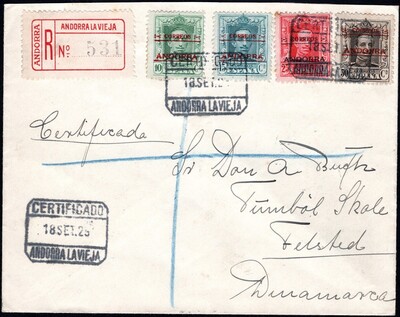 ANDORRA LA VIEJA
ANDORRA
R
Nº 531
CORREOS
ANDORRA
10 Cs
CORREOS
ANDORRA
Cs
CORREOS
ANDORRA
CORREOS
ANDORRA
30 Cs
18.SET.2
ANDORRA LA VIEJA
Certificada
Sr Don A
Tumböl Skole
Felsted
Dinamarca
CERTIFICADO
18SET.29
ANDORRA LA VIEJA